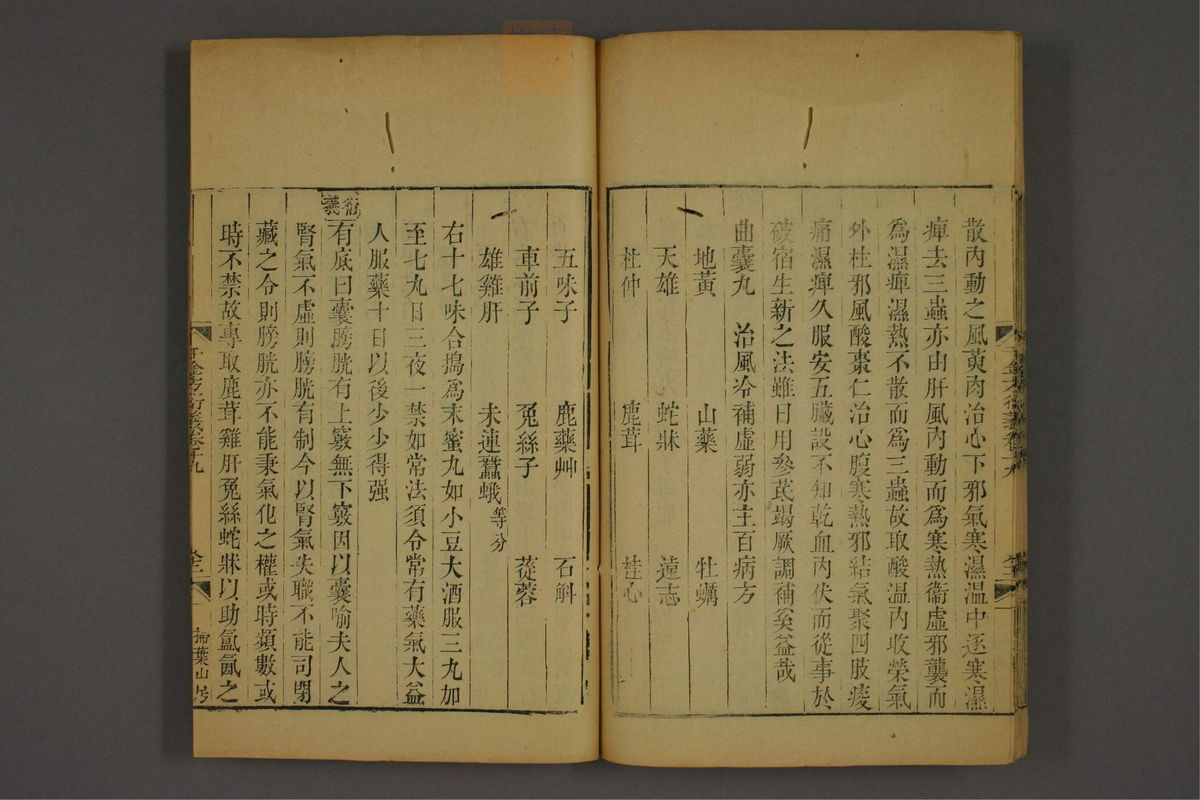 散內動之風萸肉治心下邪氣寒濕溫中逐寒濕
痺去三蟲亦由肝風內動而為寒熱衞虛邪襲而
為濕痺濕熱不散而為三蟲故取酸溫內收榮氣
外杜邪風酸棗仁治心腹寒熱邪結氣聚四肢痠
痛濕痺久服安五臟設不知乾血內伏而從事於
破宿生新之法雖日用參芪竭厥調補奚益哉
曲囊丸　治風冷補虛弱亦主百病方
地黃　山藥　牡蠣
天雄　蛇牀　遠志
杜仲　鹿茸　桂心
五味子　鹿藥艸　石斛
車前子　菟絲子　蓯蓉
雄雞肝　未連蠶蛾等分
右十七味合搗為末蜜丸如小豆大酒服三丸加
至七丸日三夜一禁如常法須令常有藥氣大益
人服藥十日以後少少得强
衍義
有底曰囊膀胱有上竅無下竅因以囊喻夫人之
腎氣不虛則膀胱有制今以腎氣失職不能司閉
藏之令則膀胱亦不能秉氣化之權或時頻數或
時不禁故專取鹿茸雞肝菟絲蛇牀以助氤氳之
千金方衍義卷十九
掃葉山房